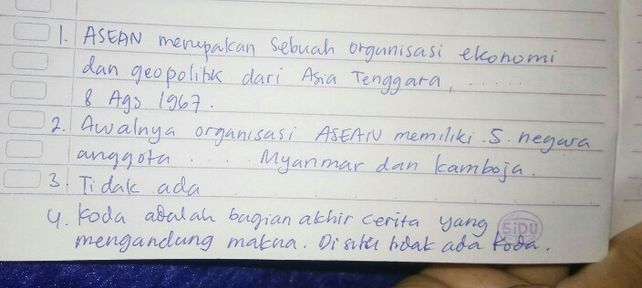 1. ASEAN merupakan sebuah organisasi ekonomi
dan geopolitik dari Asia Tenggara, ......
8 Ags 1967.
2. Awalnya organisasi ASEAN memiliki 5 negara
anggota .... Myanmar dan kamboja.
3. Tidak ada
4. Koda adalah bagian akhir cerita yang
SiDU
mengandung makna. Di situ tidak ada koda.